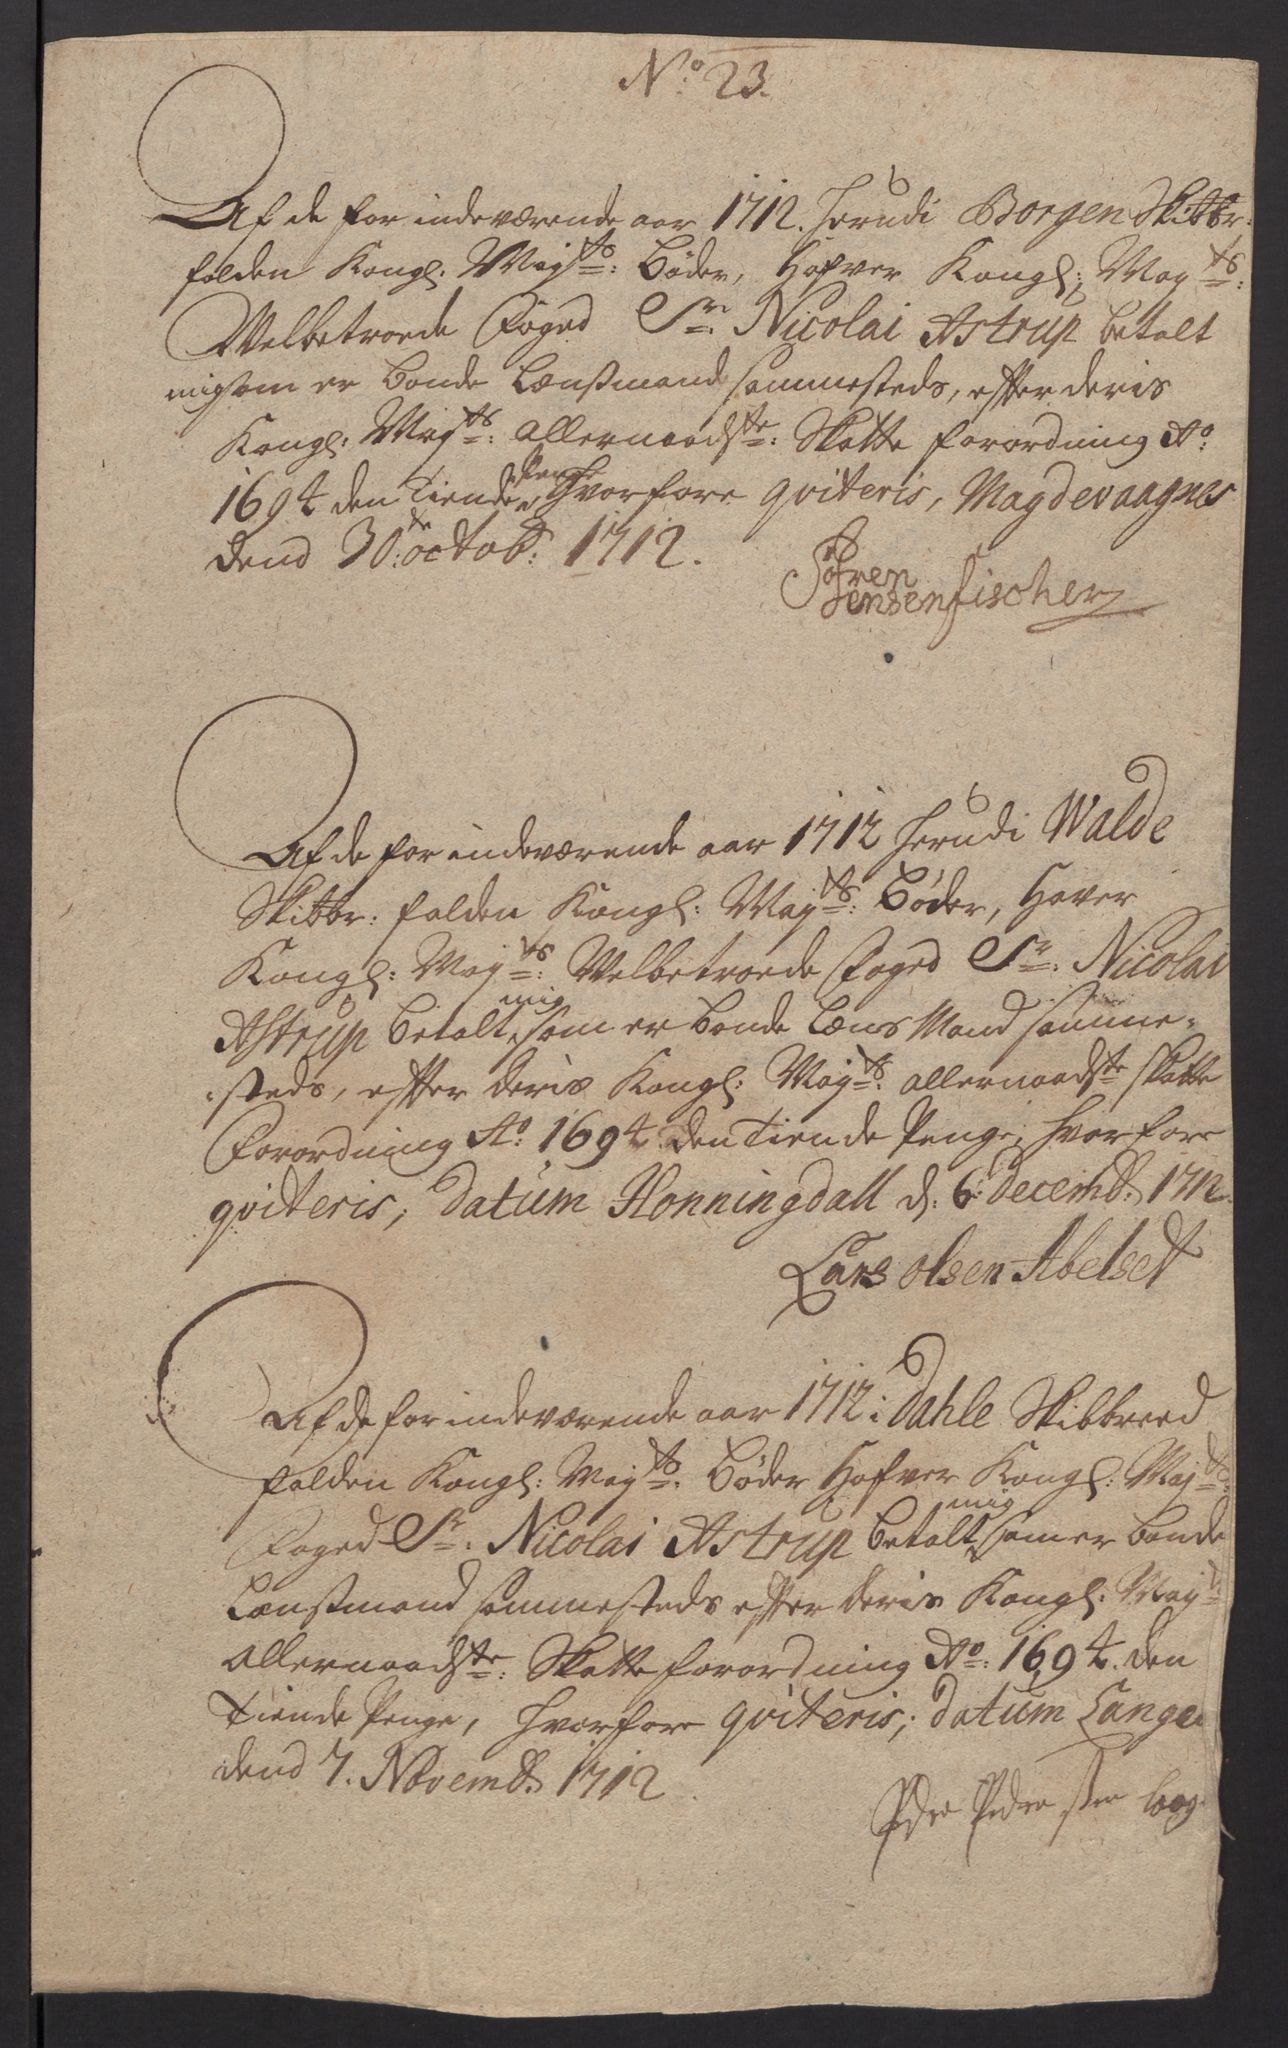 No: 23.
Af de for indeværende aar 1712. herudi Borgen Skibbr:
falden Kongl. Mayts: Bøder, Hafver Kongl: Mayts:
Velbetroede Foged Sr: Nicolai Astrup betalt
mig som er bonde Lænßmand sammesteds, efter deris
Kongl: Mayts: allernaadste: Skatte forordning Ao:
1694 den Tiende Penge, hvorfore qviteris, Magdevaagnes
dend 30te: octob: 1712.
Søfren
Jensen fischer
Af de for indeværende aar 1712 herudi Walde
Skibbr: falden Kongl: Mayts: Bøder, Haver
Kongl: Mayts: Velbetroede Foged Sr: Nicolai
Astrup betalt mig som er bonde Læns Mand samme-
steds, efter deris Kongl: Mayts: allernaadste skatte
Forordning Ao: 1694 den Tiende Penge, hvorfore
qviteris, Datum Honningdall d: 6: decemb: 1712.
Lars olsen Abelset
Af de for indeværende aar 1712 i Dahle Skibbreed
falden Kongl: Mayts: Bøder Hafver Kongl: Mayts:
Foged Sr: Nicolai Astrup betalt mig som er bonde
Lænstmand sammesteds efter deris Kongl: Mayts
allernaadste: Skatte forordning Ao: 1694. den
Tiende Penge, hvorfore qviteris; Datum Lange
dend 7. Novemb: 1712